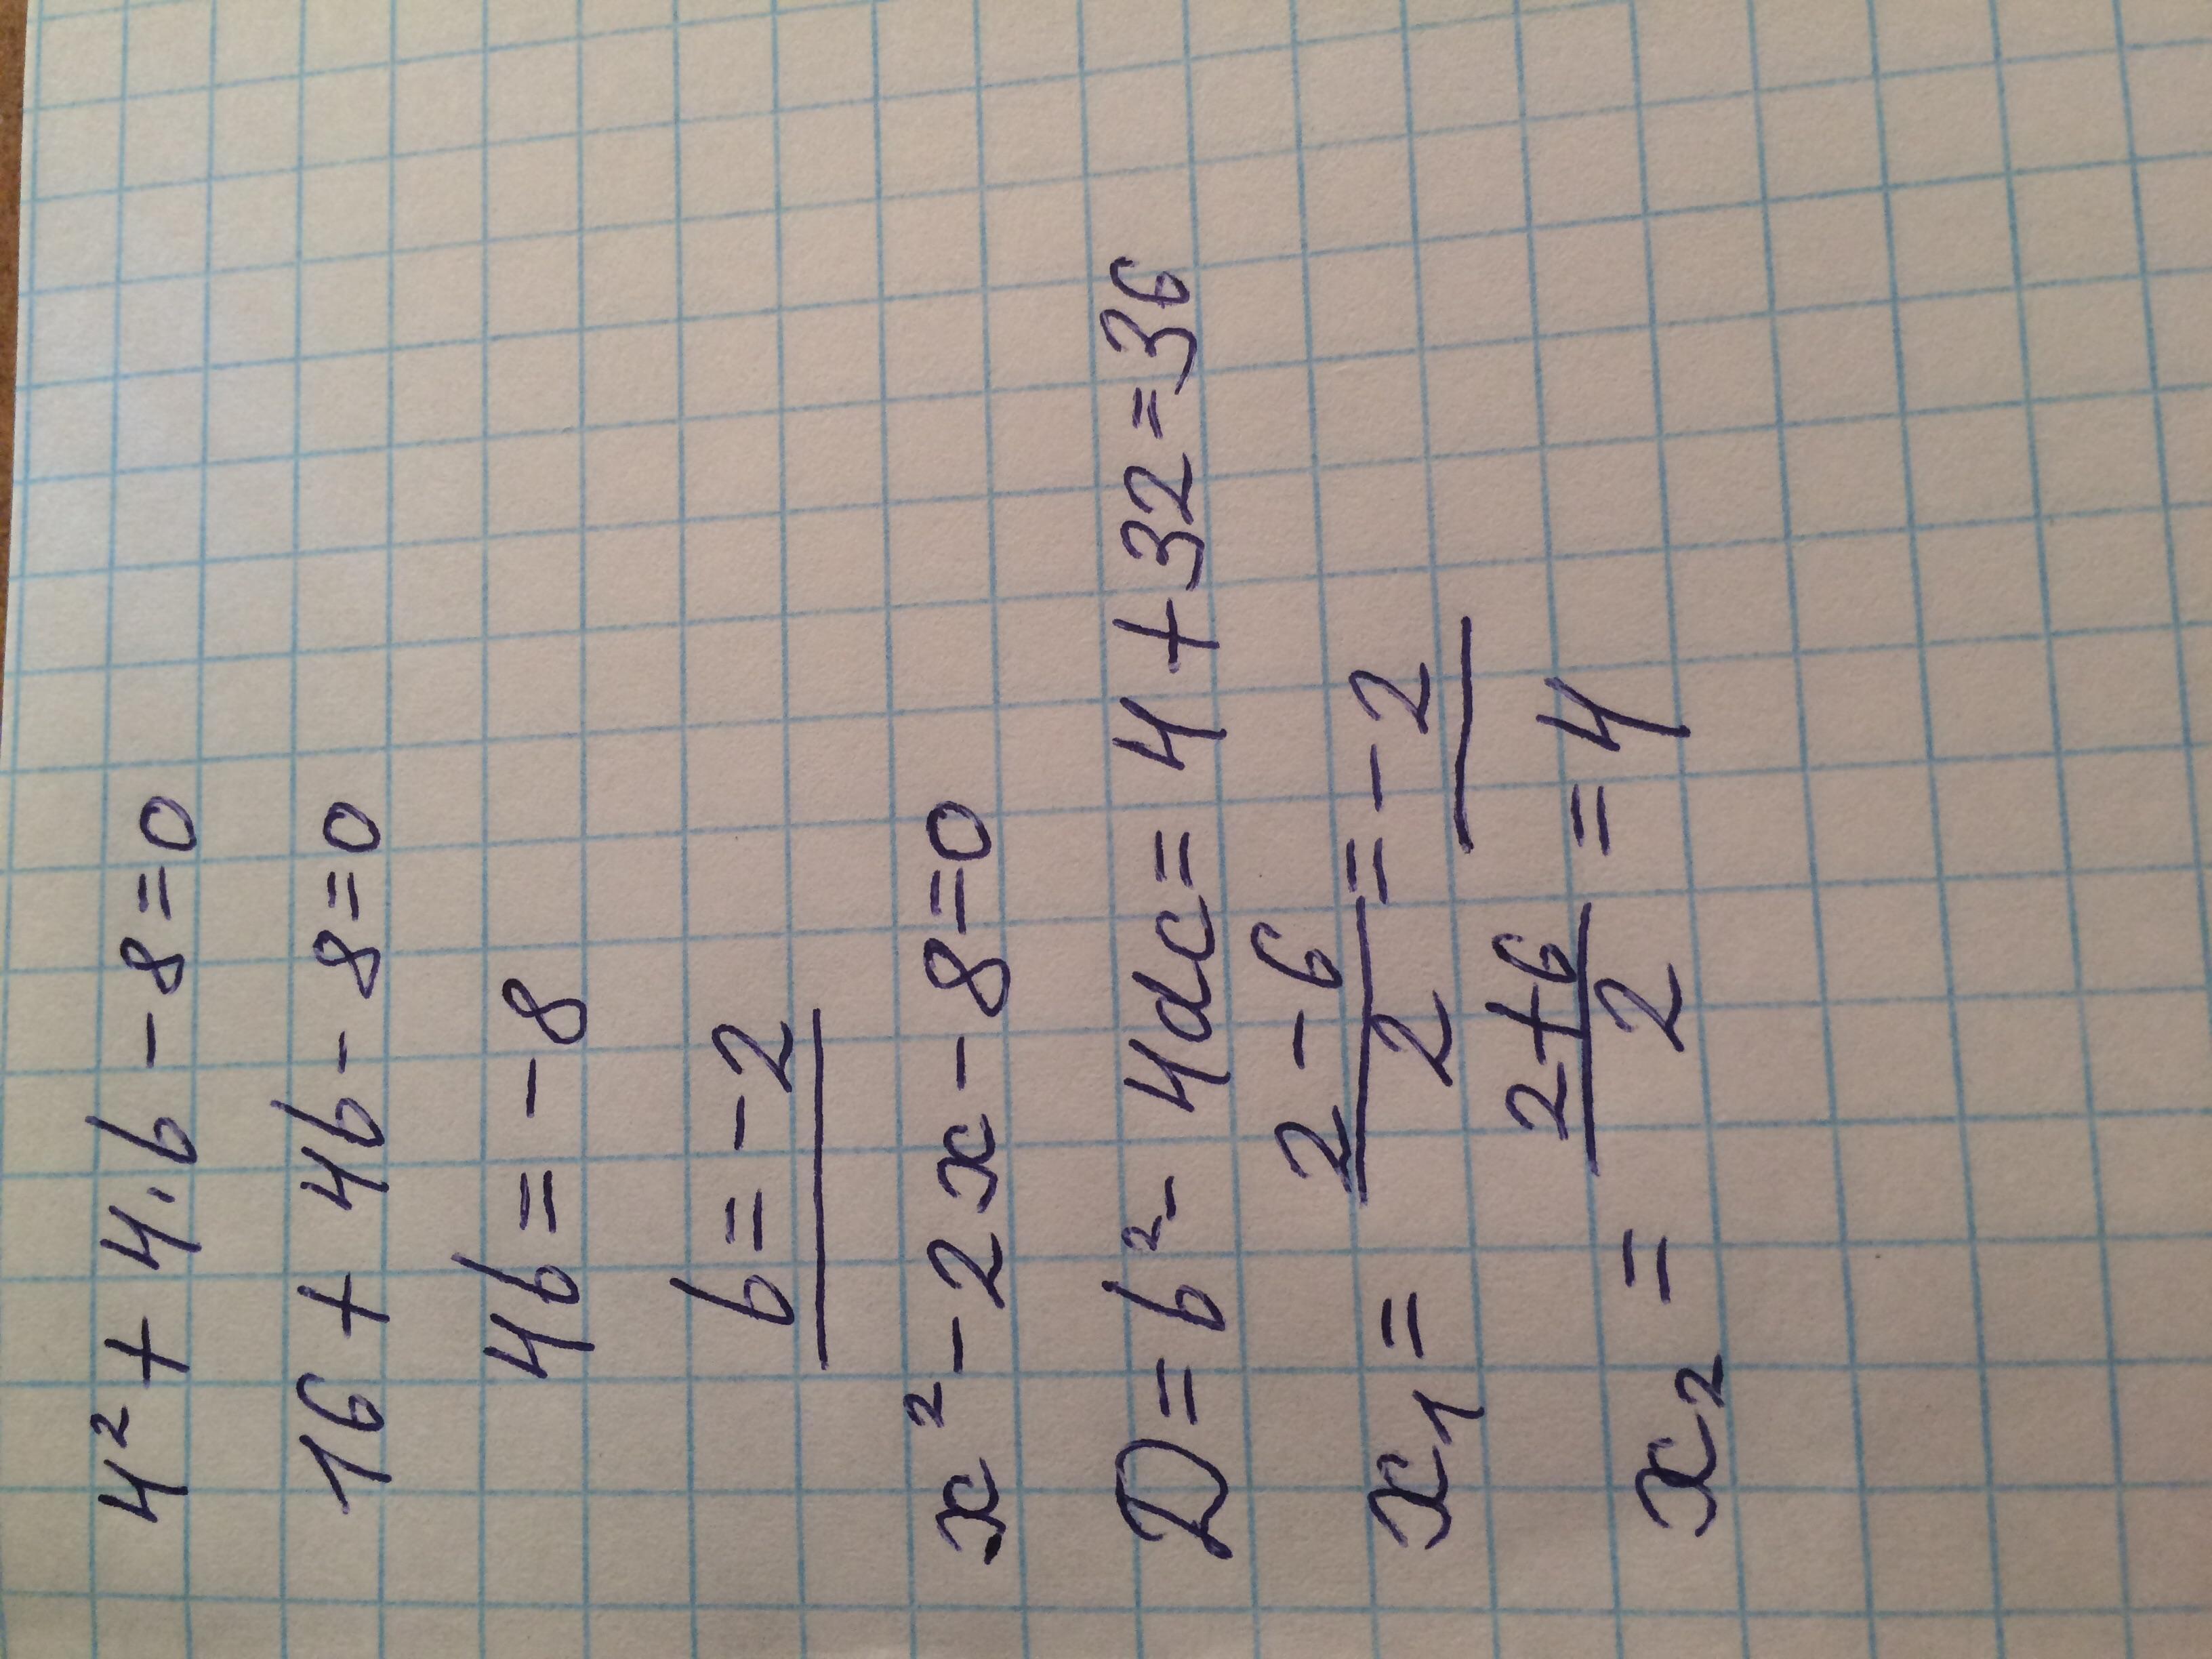 4² + 4 · b - 8 = 0
16 + 4b - 8 = 0
4b = -8
b = -2
x² - 2x - 8 = 0
D = b² - 4ac = 4 + 32 = 36
x₁ = (2 - 6)/2 = -2
x₂ = (2 + 6)/2 = 4